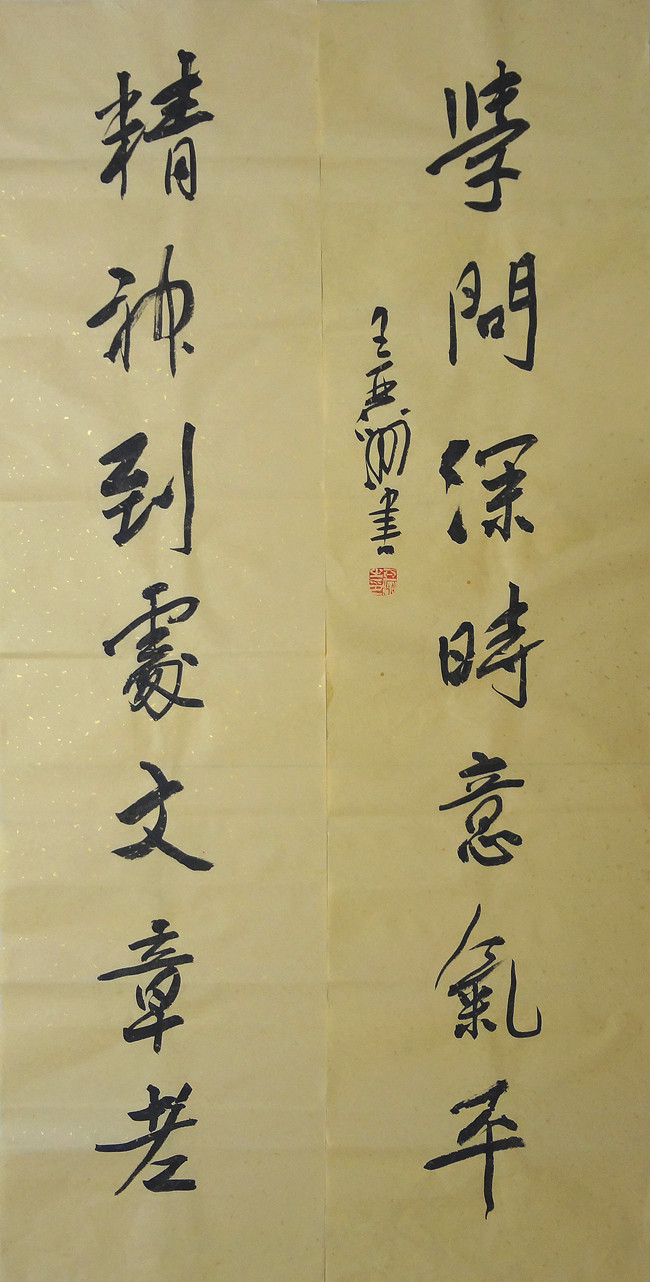 學問深時意氣平
王亞洲書
精神到處文章老